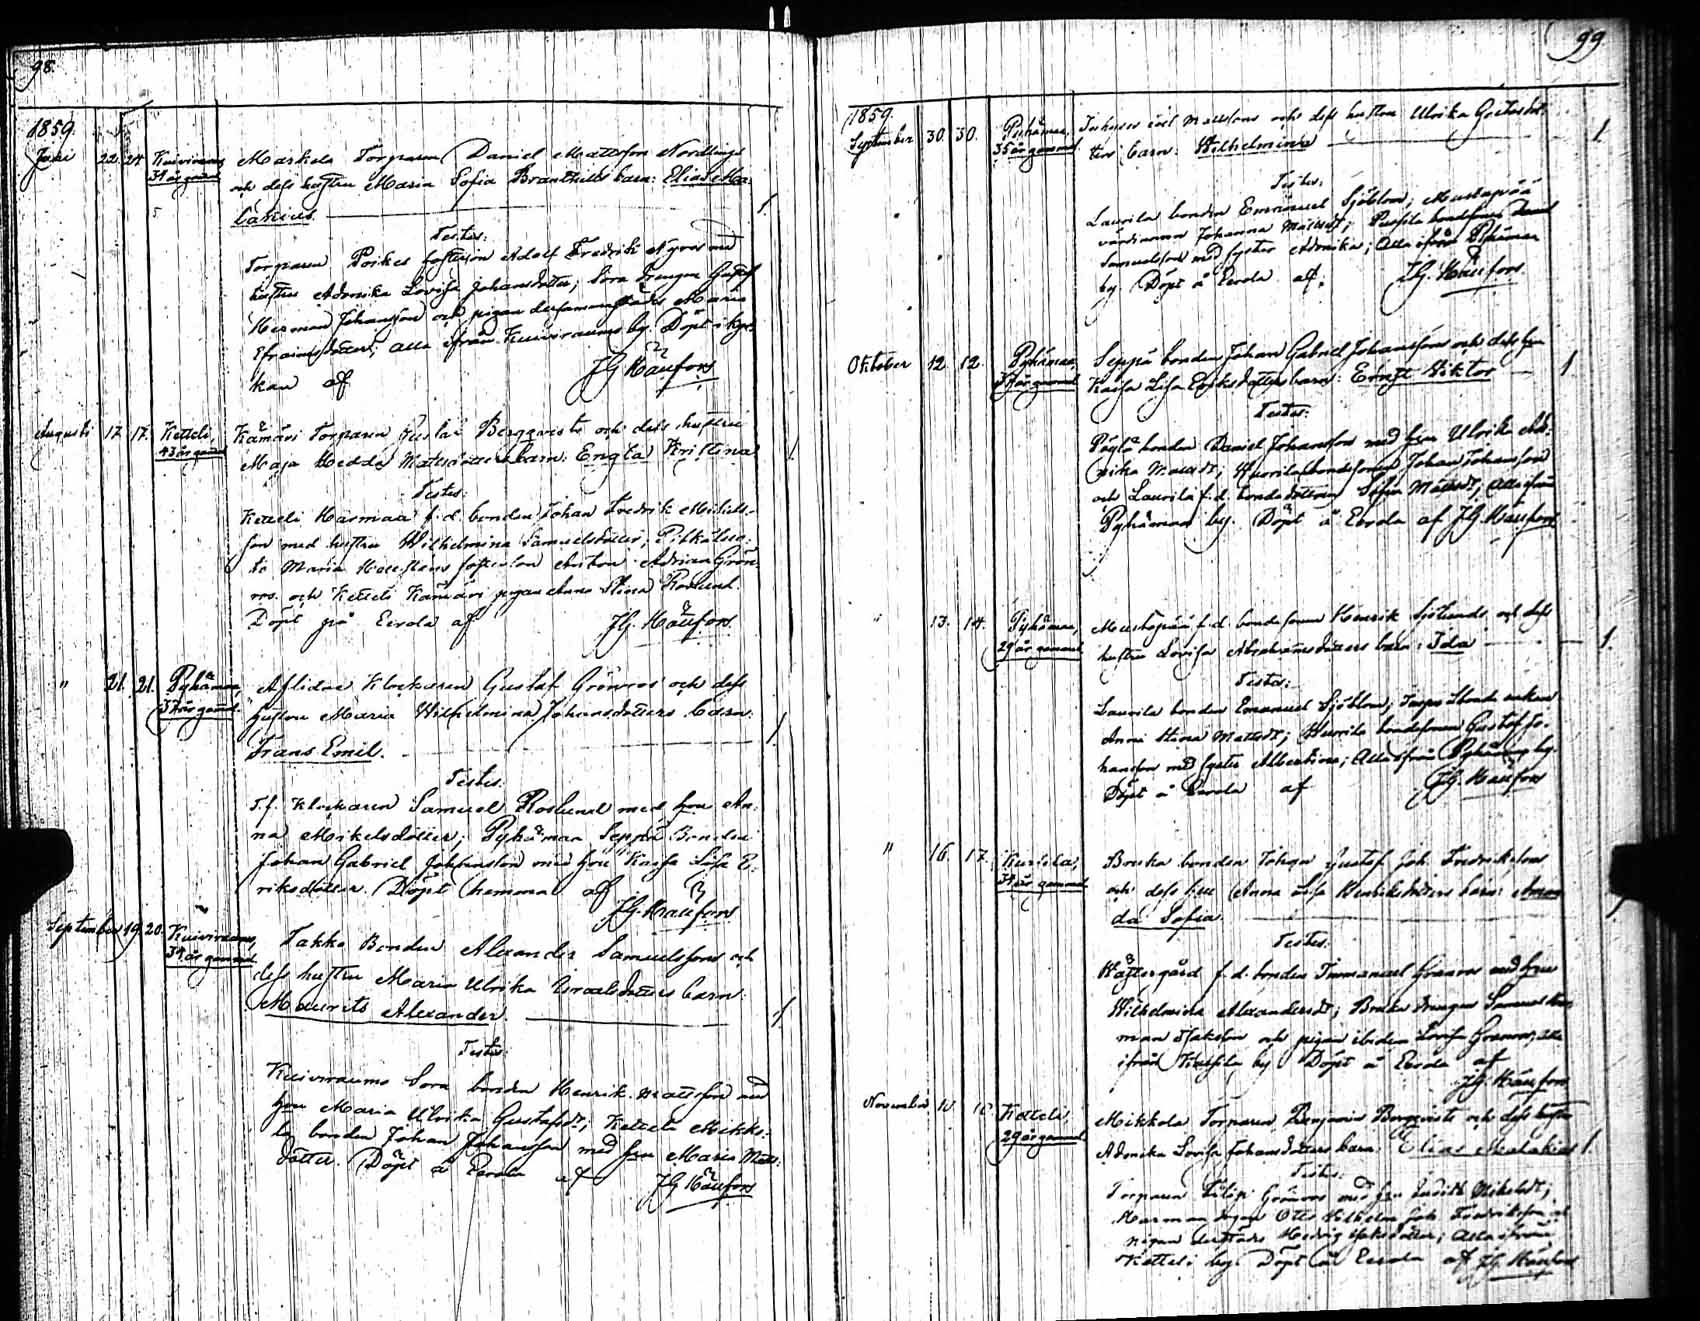 98.
1859.
Juni 22. 24. Kuiviraums Markula Torparen Daniel Mattsson Nordlings
34 år gamml och dess hustru Maria Sofia Branthills barn: Elias Ma-
lakias.
Testes:
Torparen fosterson Adolf Fredrik med
hustru Adamika Lovisa Johansdotter; Sora drengen Gustaf
Herman Johansson och pigan dersammastädes Maria
Efraimsdotter; alla ifrån Kuiviraums by. Döpt i kyr-
kan af JG Häufors
Augusti 17. 17. Ketteli, Kämäri Torparen Gustaf Bergqvists och dess hustru
43 år gamml Maja Hedda Mattsdotters barn: Engla Kristina
Testes:
Ketteli Harmaa f.d. bonden Johan Fredrik Mikels-
son med hustru Wilhelmina Samuelsdotter;
Maria fosterson Anton Adrian Grön-
ros och Ketteli Kämäri pigan Anna Stina Roslund.
Döpt på Eerola af J.G. Häufors
" 21. 21. Pyhämaa, Aflidne Klockaren Gustaf Grönros och dess
37 år gamml. hustru Maria Wilhelmina Johansdotters barn:
Frans Emil.
Testes:
T.f. Klockaren Samuel Roslund med hru An-
na Mikelsdotter; Pyhämaa Seppä Bonden
Johan Gabriel Johansson med hru Kaisa Lisa E-
riksdotter. Döpt hemma af
J.G. Häufors
September 19. 20. Kuiviraums, Takko Bonden Alexander Samuelssons och
34 år gamml. dess hustru Maria Ulrika Israelsdotters barn:
Maurits Alexander.
Testes:
Kuiviraums Sora bonden Henrik Mattsson med
hru Maria Ulrika Gustafsdr; Ketteli Mikko-
la bonden Johan Johansson med hru Maria Matts-
dotter. Döpt å Eerola af JG Häufors
99
1859.
September 30. 30. Pyhämaa, Mattssons och dess hustru Ulrika
35 år gammal barn: Wilhelmina 1
Testes:
Laurila bonden Emanuel Sjöblom; Mustapää
värdinnan Johanna Mattsdr; bondsonen
Samuelsson med syster Adamika; Alla ifrån Pyhämaa
by. Döpt å Eerola af. J.G. Häufors.
Oktober 12. 12. Pyhämaa, Seppä bonden Johan Gabriel Johanssons och dess hru
Kaisa Lisa Eriksdotters barn: Ernst Viktor 1
Testes:
bonden Daniel Johansson med hru Ulrika Ad-
amika Mattsdr; bondesonen Johan Johansson
och Laurila f.d. bondedottern Sofia Mattsdr; Alla ifrån
Pyhämaa by. Döpt å Eerola af J.G. Häufors
" 13. 14. Pyhämaa, Mustapää f.d. bondesonen Henrik Sjölunds och dess
29 år gammal hustru Lovisa Abrahamsdotters barn: Ida 1.
Testes:
Laurila bonden Emanuel Sjöblom; enkan
Anna Stina Mattsdr; bondesonen Gustaf Jo-
hansson med syster Albertina; Alla ifrån Pyhämaa by.
Döpt å Eerola af J.G. Häufors
" 16. 17. Kursila, bonden Johan Gustaf Joh. Fredrikssons
34 år gammal och dess hru Anna Lisa Henriksdotters barn: Aman-
da Sofia.
Testes:
Wästergård f.d. bonden Immanuel Granroos med hru
Wilhelmina Alexandersdr; drengen Samuel Her-
man Isaksson och pigan ibidem Lovisa Granroos; alla
ifrån Kursila by. Döpt å Eerola af
J.G. Häufors
November Ketteli, Mikkola Torparen Benjamin Bergqvists och dess hustru
29 år gammal Adamika Lovisa Johansdotters barn: Elias Malakias 1.
Testes:
Torparen Filip Grönroos med hru Judith Mikelsdr;
Harmaa drengen Otto Wilhelm Joh. Fredriksson och
pigan derstädes Hedvig Isaksdotter; alla ifrån
Ketteli by. Döpt å Eerola af J.G. Häufors